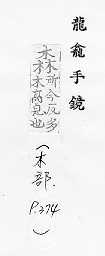 龍龕手鏡
森所今反多
木高皃也
(木部.
P.374
)